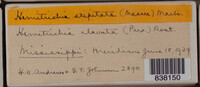 Hemitrichia stipitata (Massee) Macbr.
Hemitrichia clavata (Pers.) Rost.
Mississippi: Meridian June 18, 1929
H.N. Andrews & E.T. Johnson 2890
838150